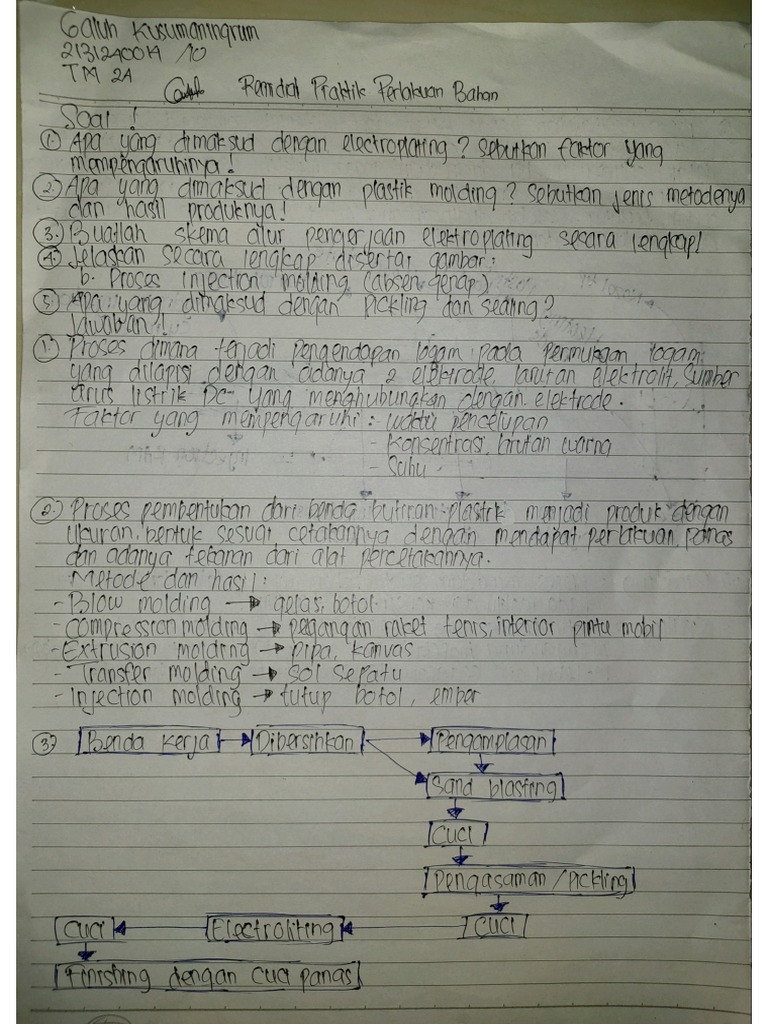 Galuh Kusumaningrum
2131240014 /10
TM 2A
Remidial Praktik Perlakuan Bahan
Soal !
1. Apa yang dimaksud dengan electroplating ? Sebutkan faktor yang
mempengaruhinya !
2. Apa yang dimaksud dengan plastik molding ? Sebutkan jenis metodenya
dan hasil produknya !
3. Buatlah skema alur pengerjaan elektroplating secara lengkap!
4. Jelaskan secara lengkap disertai gambar :
b. Proses injection molding (absen genap)
5. Apa yang dimaksud dengan pickling dan sealing ?
Jawaban !
1. Proses dimana terjadi pengendapan logam pada permukaan logam
yang dilapisi dengan adanya 2 elektrode, larutan elektrolit, sumber
arus listrik DC yang menghubungkan dengan elektrode.
Faktor yang mempengaruhi : - waktu pencelupan
- Konsentrasi larutan warna
- Suhu
2. Proses pembentukan dari benda butiran plastik menjadi produk dengan
ukuran, bentuk sesuai cetakannya dengan mendapat perlakuan panas
dan adanya tekanan dari alat percetakannya.
Metode dan hasil :
- Blow molding → gelas, botol
- compression molding → pegangan raket tenis, interior pintu mobil
- Extrusion molding → pipa, kanvas
- Transfer molding → sol sepatu
- Injection molding → tutup botol, ember
3. Benda kerja → Dibersihkan → Pengamplasan
Sand blasting
Cuci
Pengasaman / Pickling
Cuci ← Electroliting ← Cuci
Finishing dengan cuci panas